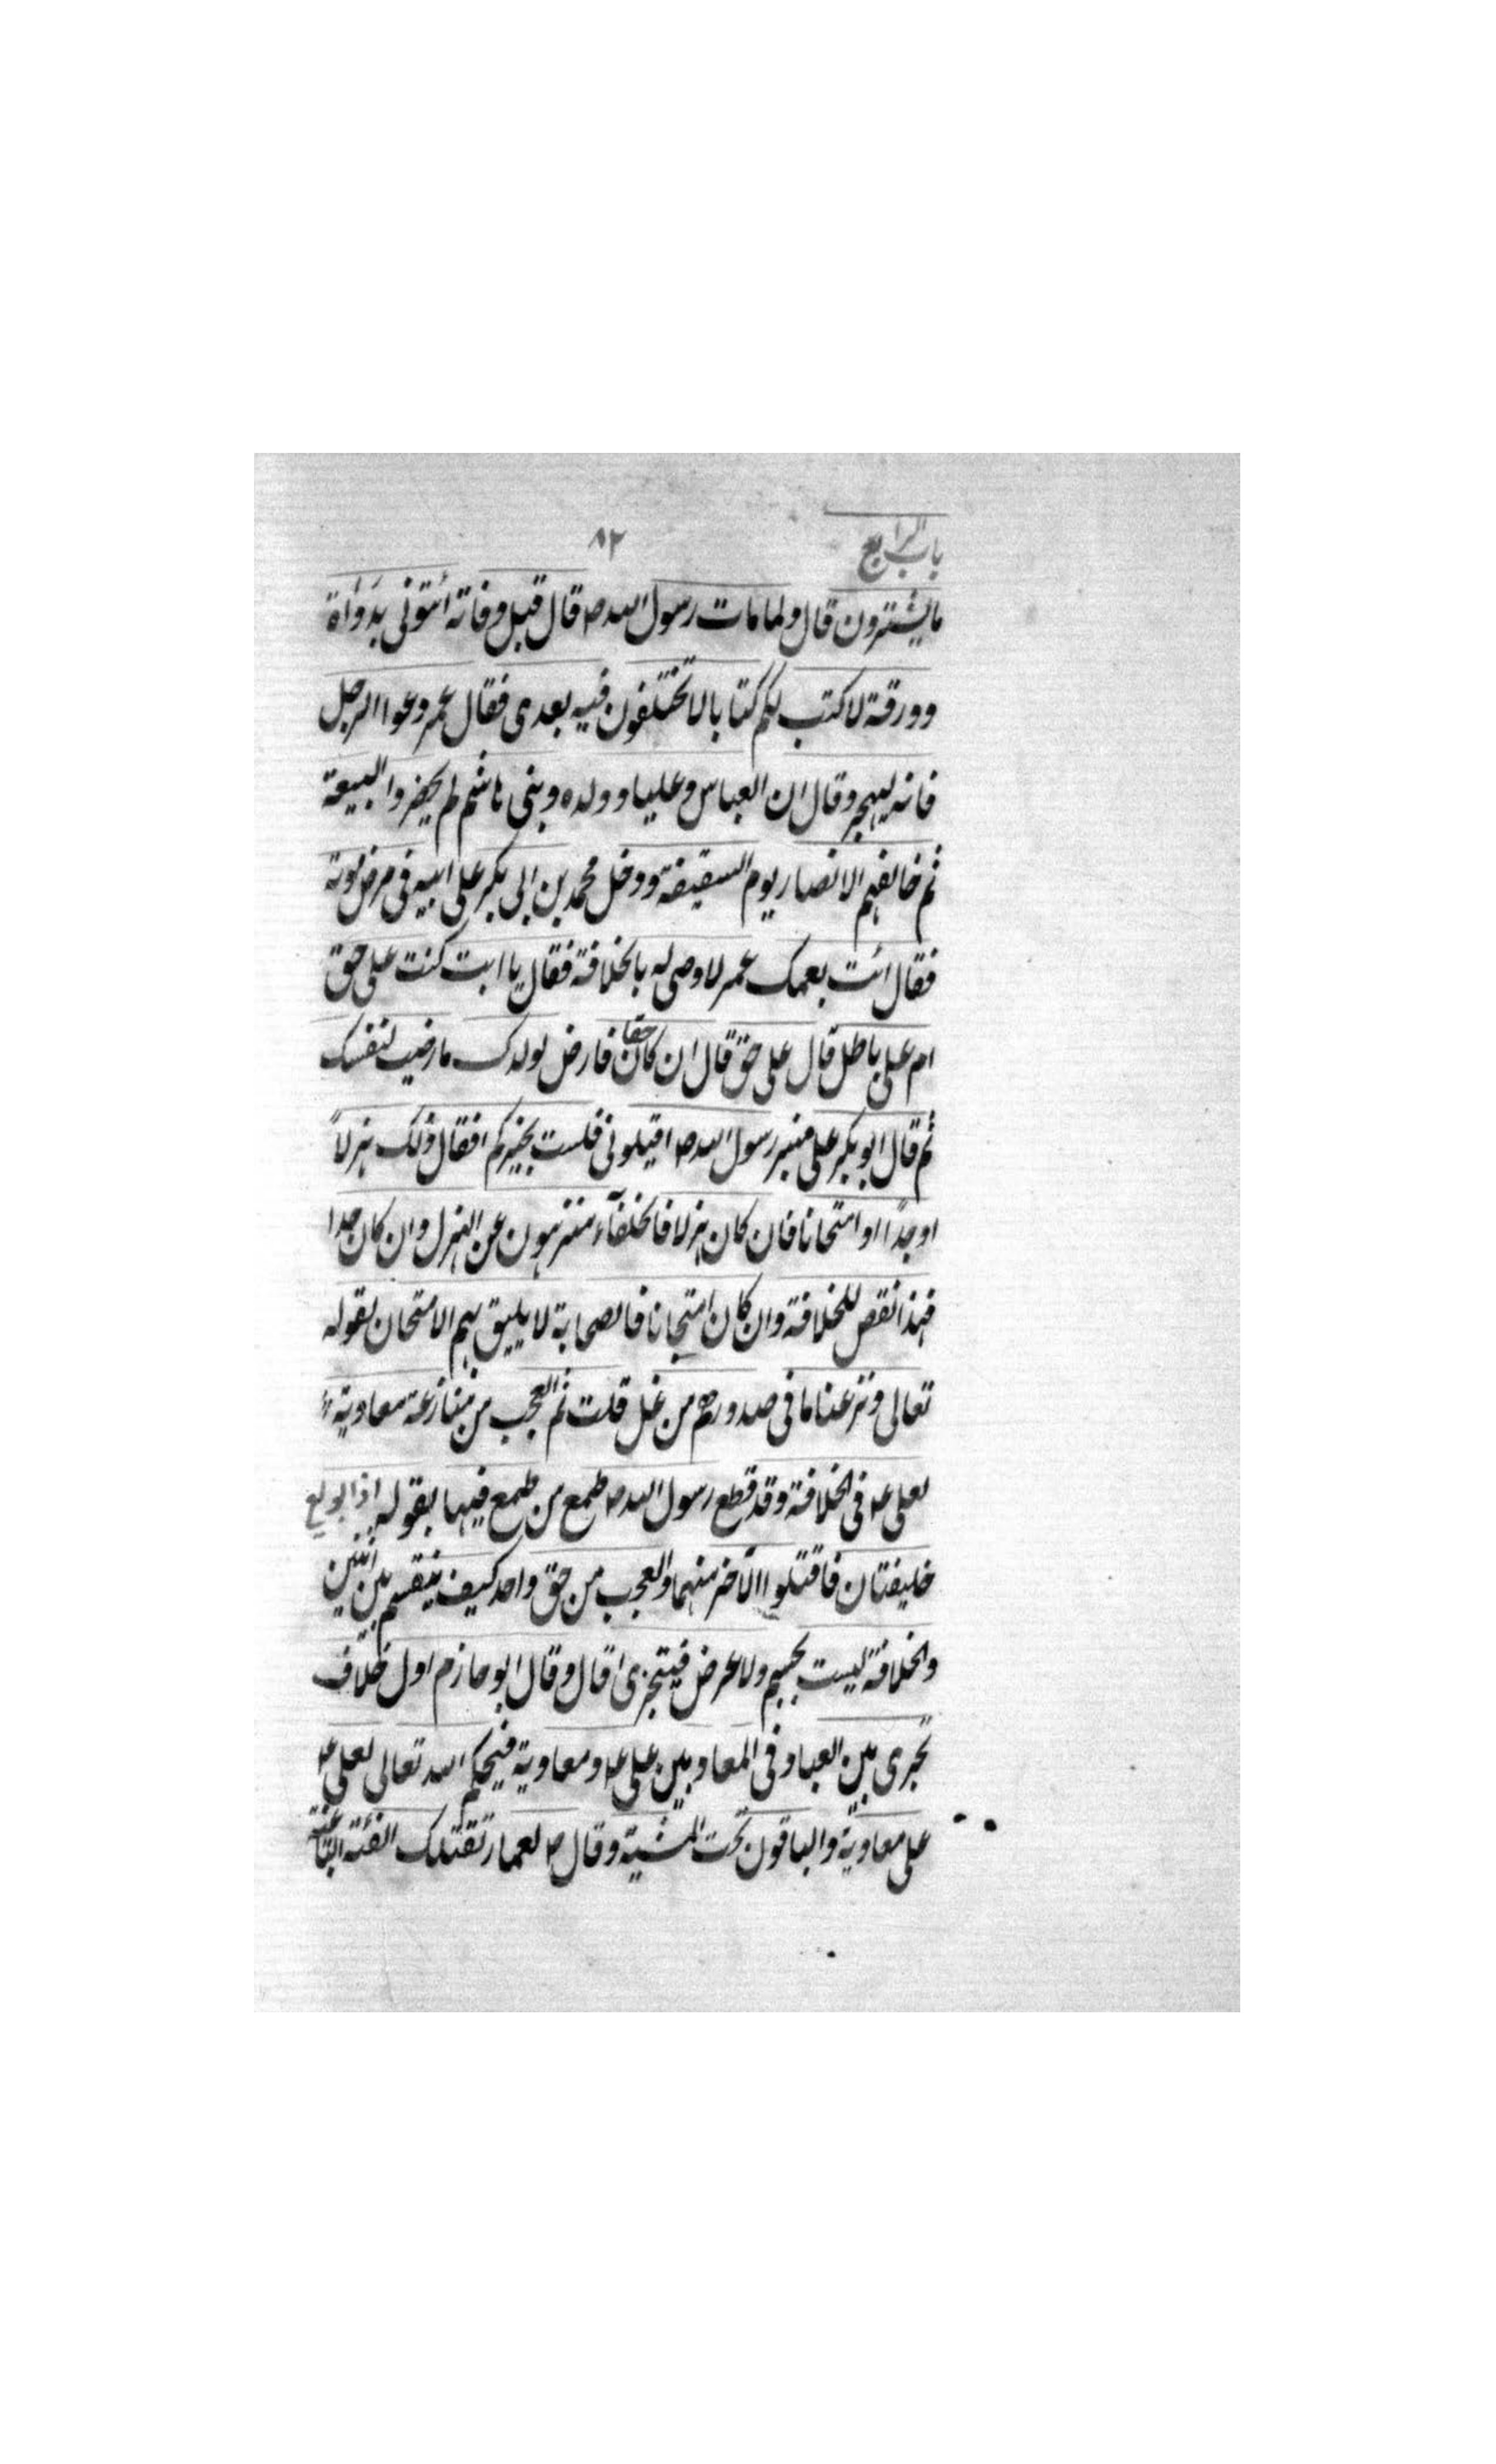 باب الرابع ٨٢
ما يشترون قال ولما مات رسول الله ص قال قبل وفاته ائتونى بدواة
وورقة لاكتب لكم كتابا لا تختلفون فيه بعدى فقال عمر دعوا الرجل
فانه ليهجر وقال ان العباس وعليا وولده وبنى هاشم لم يحضروا البيعة
ثم خالفهم الانصار يوم السقيفة ودخل محمد بن ابى بكر على ابيه فى مرض موته
فقال ائت بعمك عمر لاوصى له بالخلافة فقال يا ابت كنت على حق
ام على باطل قال على حق قال ان كان حقا فارض لولدك ما رضيت لنفسك
ثم قال ابو بكر على منبر رسول الله ص اقيلونى فلست بخيركم افقال ذلك هزلاً
او جدًا او امتحانا فان كان هزلا فالخلفآء منزهون عن الهزل وان كان جدا
فهذا نقص للخلافة وان كان امتحانا فالصحابة لا يليق بهم الامتحان لقوله
تعالى ونزعنا ما فى صدورهم من غل قلت ثم العجب من منازعة معاوية
لعلى ع فى الخلافة وقد قطع رسول الله ص طمع من طمع فيها بقوله اذا بويع
خليفتان فاقتلوا الآخر منهما والعجب من حق واحد كيف ينقسم بين اثنين
والخلافة ليست بجسم ولا عرض فيتجزى قال وقال ابو حازم اول خلاف
تجرى بين العباد فى المعاد بين على ع ومعاوية فيحكم الله تعالى لعلى ع
على معاوية والباقون تحت المشية وقال ص لعمار تقتلك الفئة الباغية